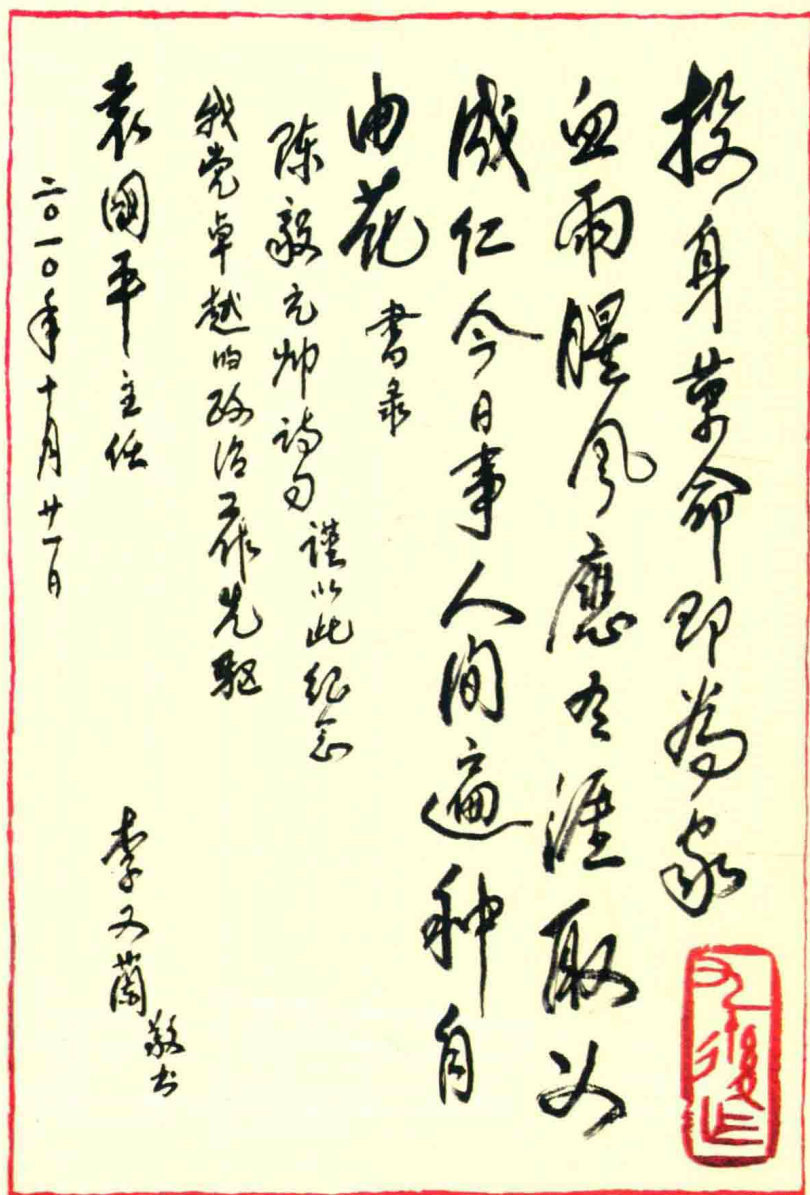 投身革命即為家
血雨腥风應有涯取义
成仁今日事人间遍种自
由花 書录
陈毅元帅诗句 谨以此纪念
我党卓越的政治工作先驱
袁國平主任
二〇一〇年十月廿一日
李又蘭敬书